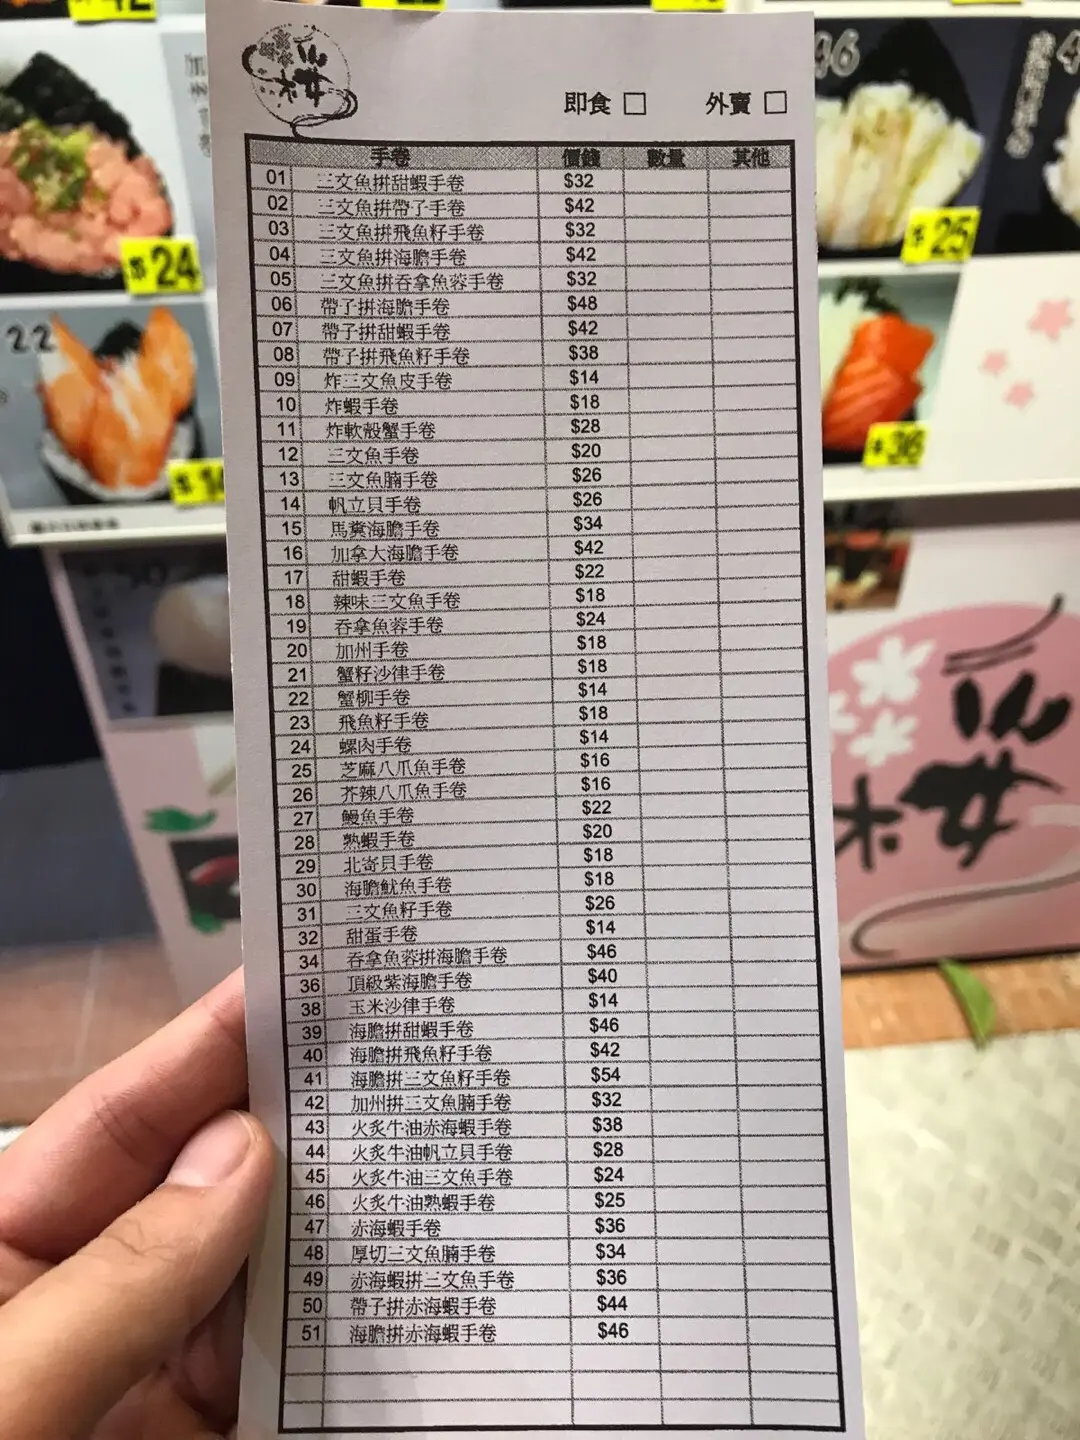 即食 □ 外賣 □
手卷 價錢 數量 其他
01 三文魚拼甜蝦手卷 $32
02 三文魚拼帶子手卷 $42
03 三文魚拼飛魚籽手卷 $32
04 三文魚拼海膽手卷 $42
05 三文魚拼吞拿魚蓉手卷 $32
06 帶子拼海膽手卷 $48
07 帶子拼甜蝦手卷 $42
08 帶子拼飛魚籽手卷 $38
09 炸三文魚皮手卷 $14
10 炸蝦手卷 $18
11 炸軟殼蟹手卷 $28
12 三文魚手卷 $20
13 三文魚腩手卷 $26
14 帆立貝手卷 $26
15 馬糞海膽手卷 $34
16 加拿大海膽手卷 $42
17 甜蝦手卷 $22
18 辣味三文魚手卷 $18
19 吞拿魚蓉手卷 $24
20 加州手卷 $18
21 蟹籽沙律手卷 $18
22 蟹柳手卷 $14
23 飛魚籽手卷 $18
24 螺肉手卷 $14
25 芝麻八爪魚手卷 $16
26 芥辣八爪魚手卷 $16
27 鰻魚手卷 $22
28 熟蝦手卷 $20
29 北寄貝手卷 $18
30 海膽魷魚手卷 $18
31 三文魚籽手卷 $26
32 甜蛋手卷 $14
34 吞拿魚蓉拼海膽手卷 $46
36 頂級紫海膽手卷 $40
38 玉米沙律手卷 $14
39 海膽拼甜蝦手卷 $46
40 海膽拼飛魚籽手卷 $42
41 海膽拼三文魚籽手卷 $54
42 加州拼三文魚腩手卷 $32
43 火炙牛油赤海蝦手卷 $38
44 火炙牛油帆立貝手卷 $28
45 火炙牛油三文魚手卷 $24
46 火炙牛油熟蝦手卷 $25
47 赤海蝦手卷 $36
48 厚切三文魚腩手卷 $34
49 赤海蝦拼三文魚手卷 $36
50 帶子拼赤海蝦手卷 $44
51 海膽拼赤海蝦手卷 $46
$24
22
46
$25
$36